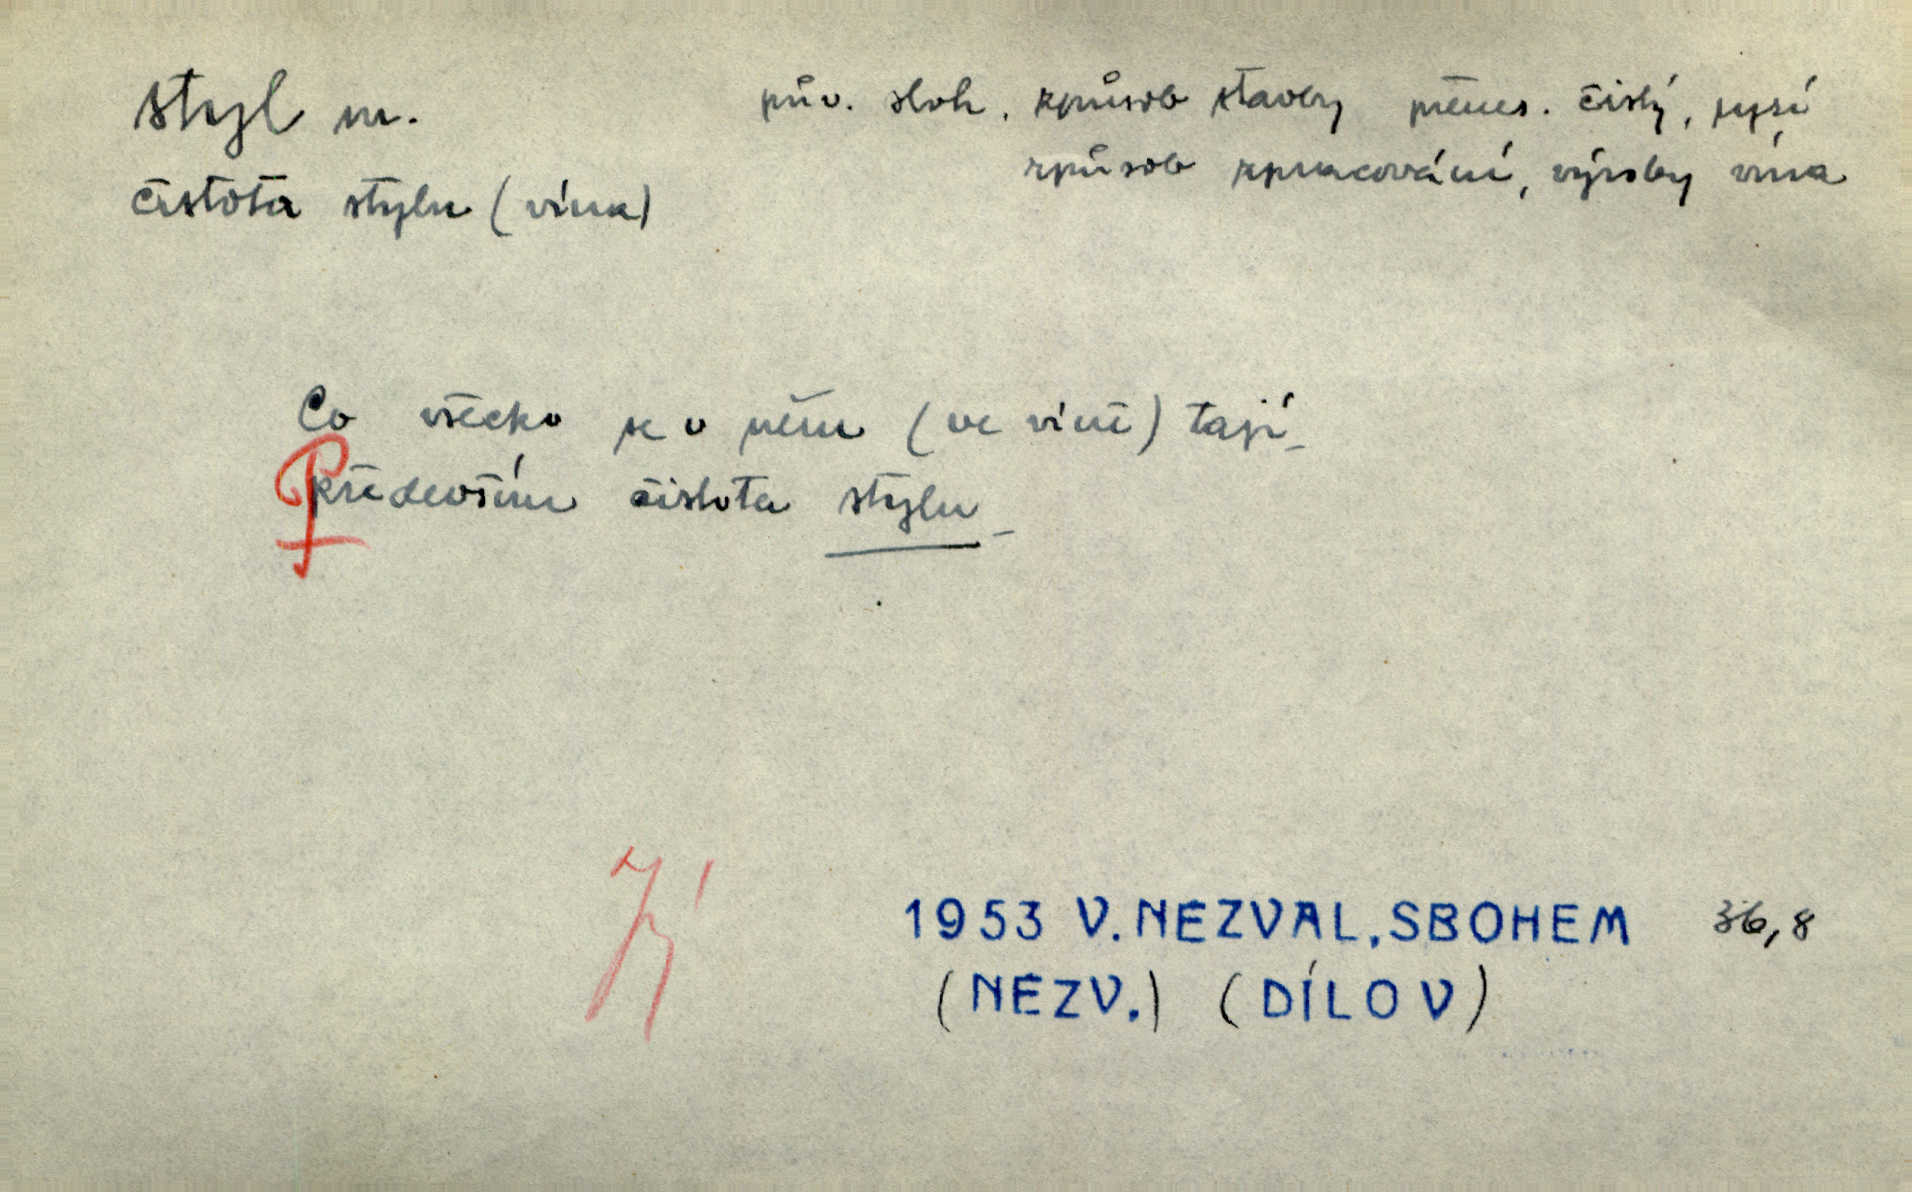 styl m.
pův. sloh, způsob stavby přenes. čistý, ryzí
způsob zpracování, výroby vína
čistota stylu (vína)
Co všecko se v něm (ve víně) tají_
Především čistota stylu_
1953 V. NEZVAL, SBOHEM 36,8
(NEZV.) (DÍLO V)